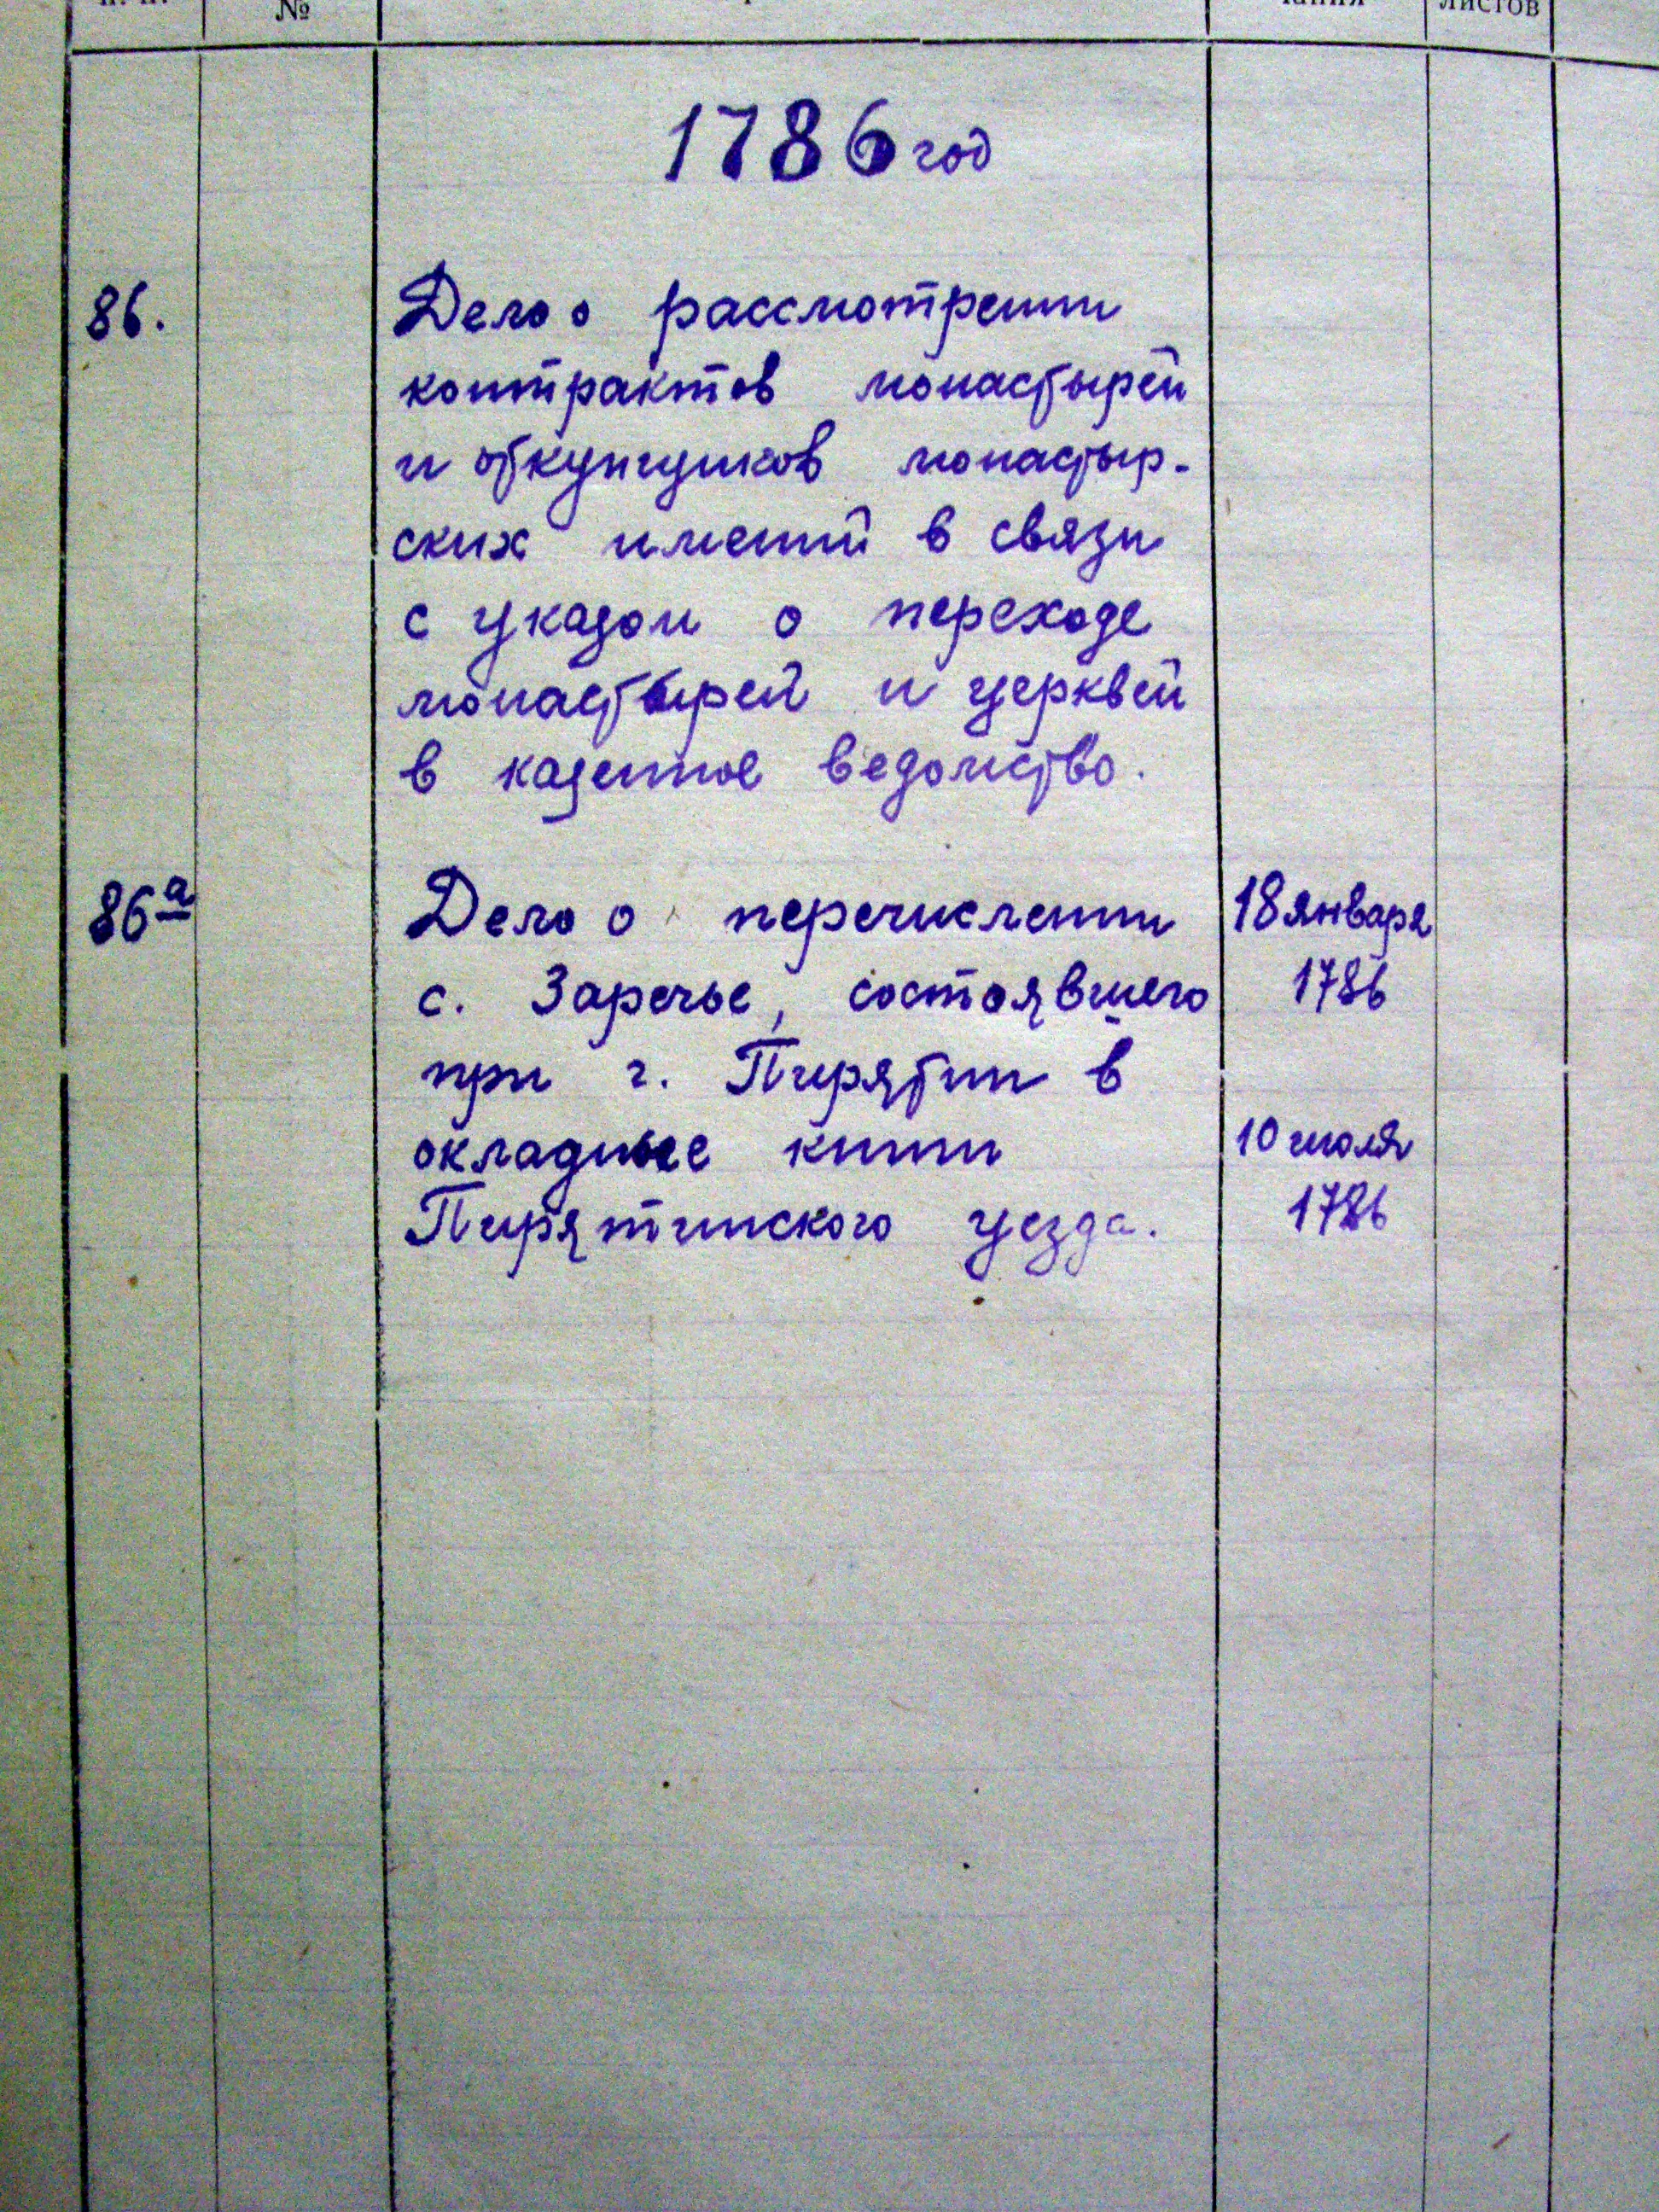 №
листов
1786 год
86.
Дело о рассмотрении
контрактов монастырей
и откупщиков монастыр-
ских имений в связи
с указом о переходе
монастырей и церквей
в казенное ведомство.
86а
Дело о перечислении
18 января
с. Заречье, состоявшего
1786
при г. Пирятин в
окладные книги
10 июля
Пирятинского уезда.
1786